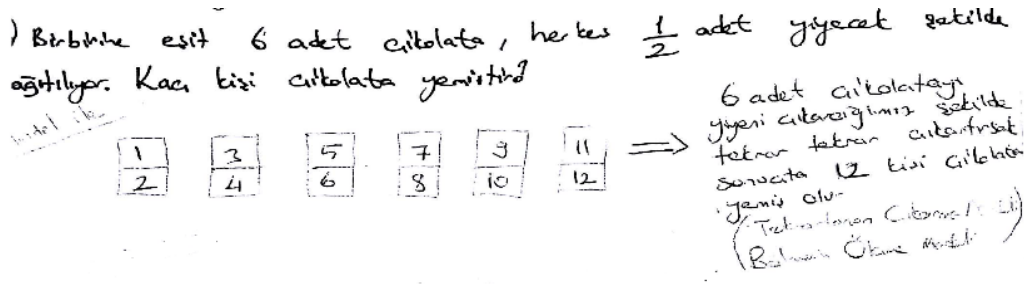 ) Birbirine eşit 6 adet çikolata, herkes 1/2 adet yiyecek şekilde
ağıtılıyor. Kaç kişi çikolata yemiştir?
model ile
1 3 5 7 9 11
2 4 6 8 10 12
⇒ 6 adet çikolatayı
yiyeni çıkaracağımız şekilde
tekrar tekrar çıkartırsak
sonuçta 12 kişi çikolata
yemiş olur
(Tekrarlanan Çıkarmalı
Bölmenin Ölçme Modeli)